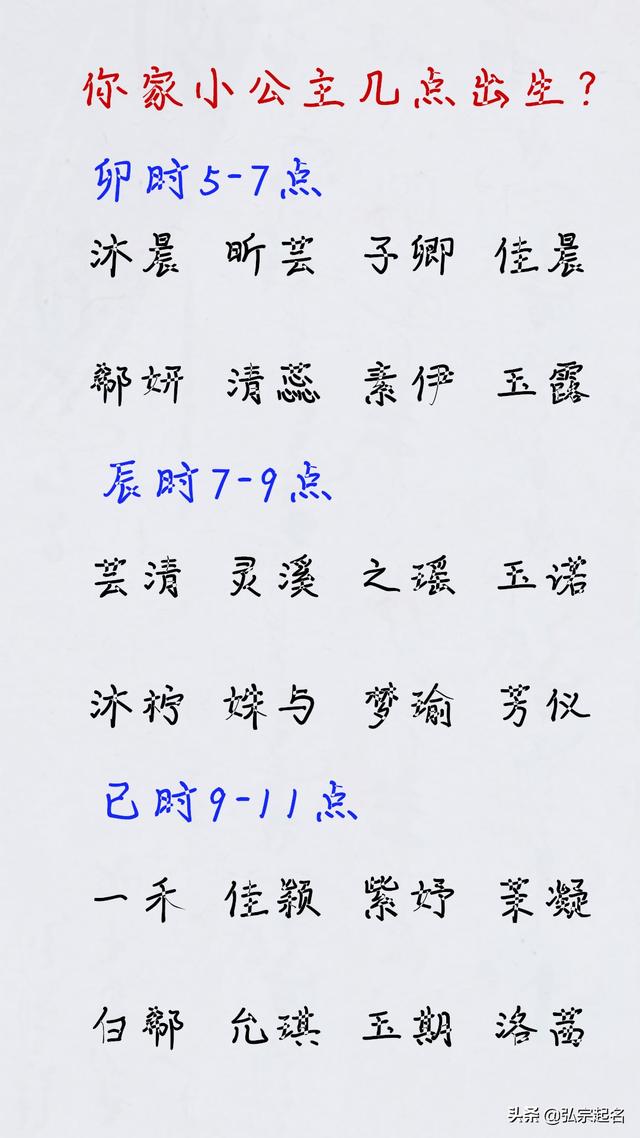 你家小公主几点出生?
卯时5-7点
沐晨 昕芸 子卿 佳晨
郗妍 清蕊 素伊 玉露
辰时7-9点
芸清 灵溪 之瑶 玉诺
沐柠 姝与 梦瑜 芳仪
巳时9-11点
一禾 佳颖 紫妤 茉凝
白郗 允琪 玉期 洛茜
头条 @弘宗起名